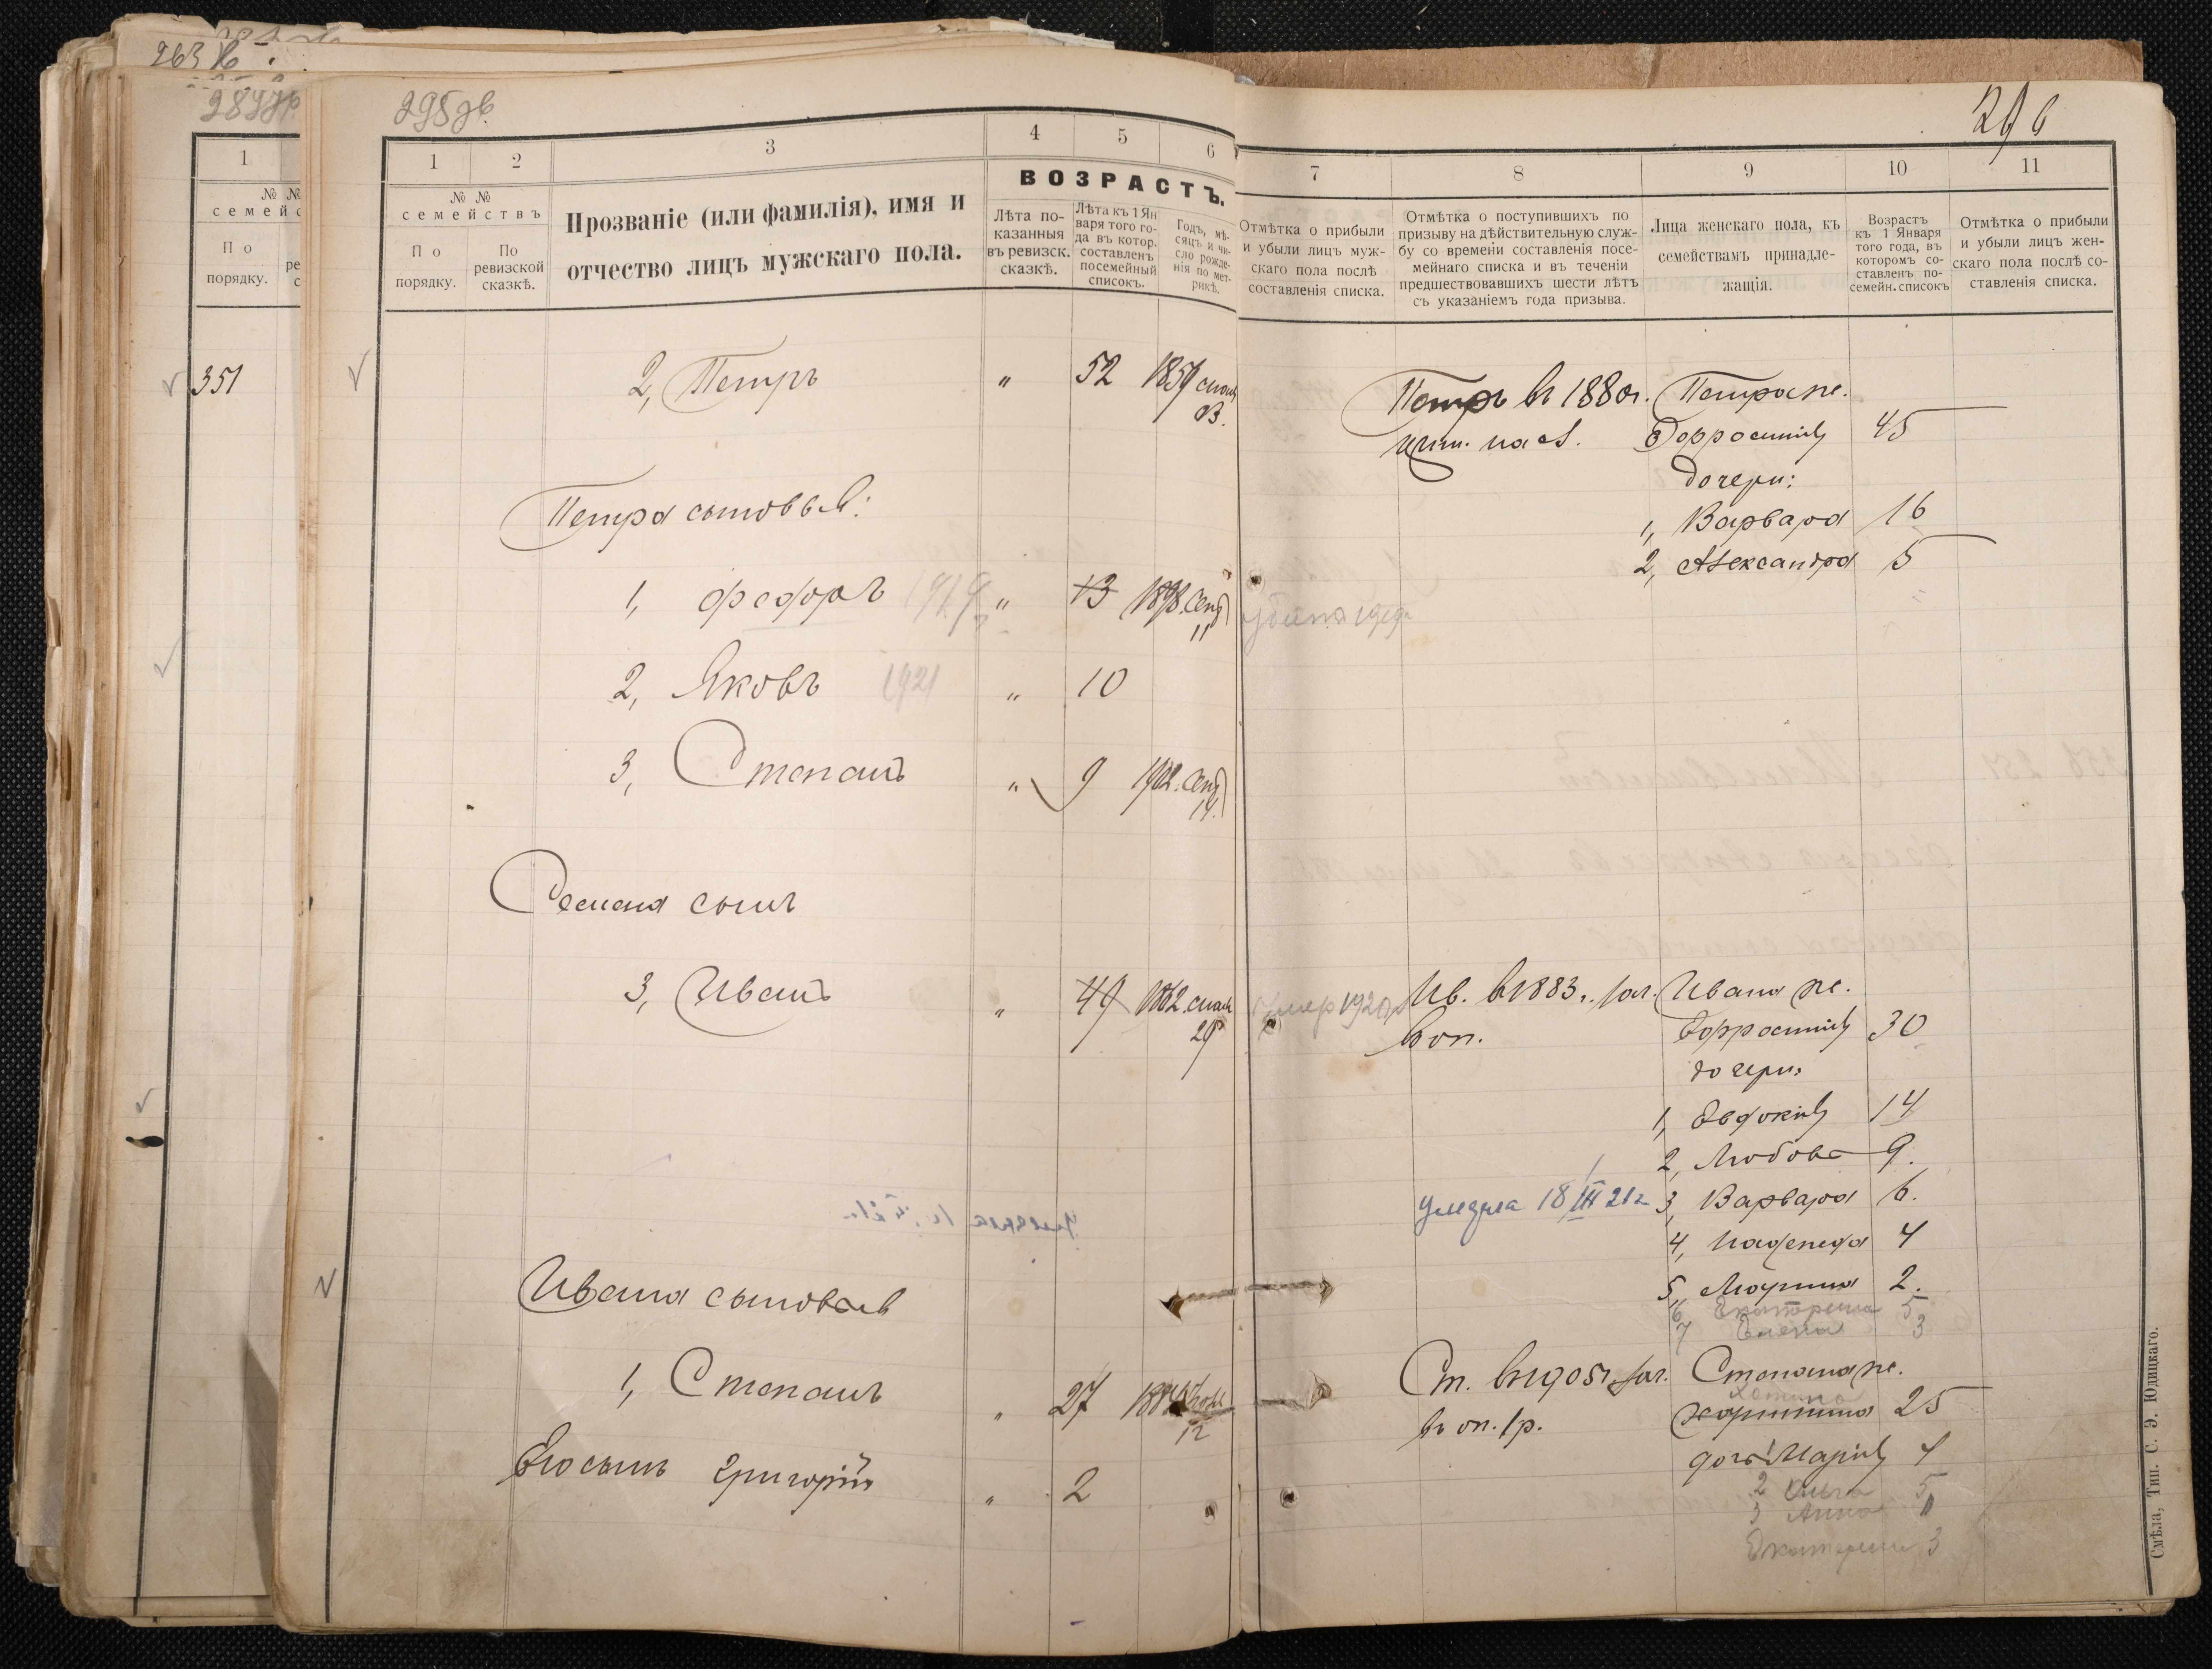 263
351
1
№ №
семейс
По
порядку.
295 зв.
1
2
3
4
5
6
№ №
семействъ
По
порядку.
По
ревизской
сказкѣ.
Прозваніе (или фамилія), имя и
отчество лицъ мужскаго пола.
ВОЗРАСТЪ.
Лѣта по-
казанныя
въ ревизск.
сказкѣ.
Лѣта къ 1 Ян
варя того го-
да въ котор.
составленъ
посемейный
списокъ.
Годъ, мѣ-
сяцъ и чи-
сло рожде-
нія по мет-
рикѣ.
2, Петръ " 52
Петра сыновья:
1, Федоръ " 13 1898. Сент
11
2, Яковъ 1921 " 10
3, Степанъ " 9 1902. Сент
14.
Семена сынъ
3, Иванъ " 49 1862
29
Ивана сыновья
1, Степанъ " 27
12
Его сынъ Григорій " 2
296
7
8
9
10
11
Отмѣтка о прибыли
и убыли лицъ муж-
скаго пола послѣ
составленія списка.
Отмѣтка о поступившихъ по
призыву на дѣйствительную служ-
бу со времени составленія посе-
мейнаго списка и въ теченіи
предшествовавшихъ шести лѣтъ
съ указаніемъ года призыва.
Лица женскаго пола, къ
семействамъ принадле-
жащія.
Возрастъ
къ 1 Января
того года, въ
которомъ со-
ставленъ по-
семейн. списокъ
Отмѣтка о прибыли
и убыли лицъ жен-
скаго пола послѣ со-
ставленія списка.
Петръ въ 1880 г. Петра же.
Ефросинія 45
дочери:
1, Варвара 16
2, Александра 5
Умер 1920 Ив. в 1883 г. зач. Ивана же.
в оп. Ефросинія 30
дочери:
1, Евдокія 14
2, Любовь 9.
Умерла 18 III 21 г. 3, Варвара 6.
4, Надежда 4
5, Марина 2.
6 Екатерина 5
7 Елена 3
Ст. въ 1905 г. зач. Степана же.
въ оп. 1 р. Харитина 25
дочь 1 Марія 4
2 Ольга 5
3 Анна
Екатерина 3
Смѣла, Тип. С. Э. Юдицкаго.